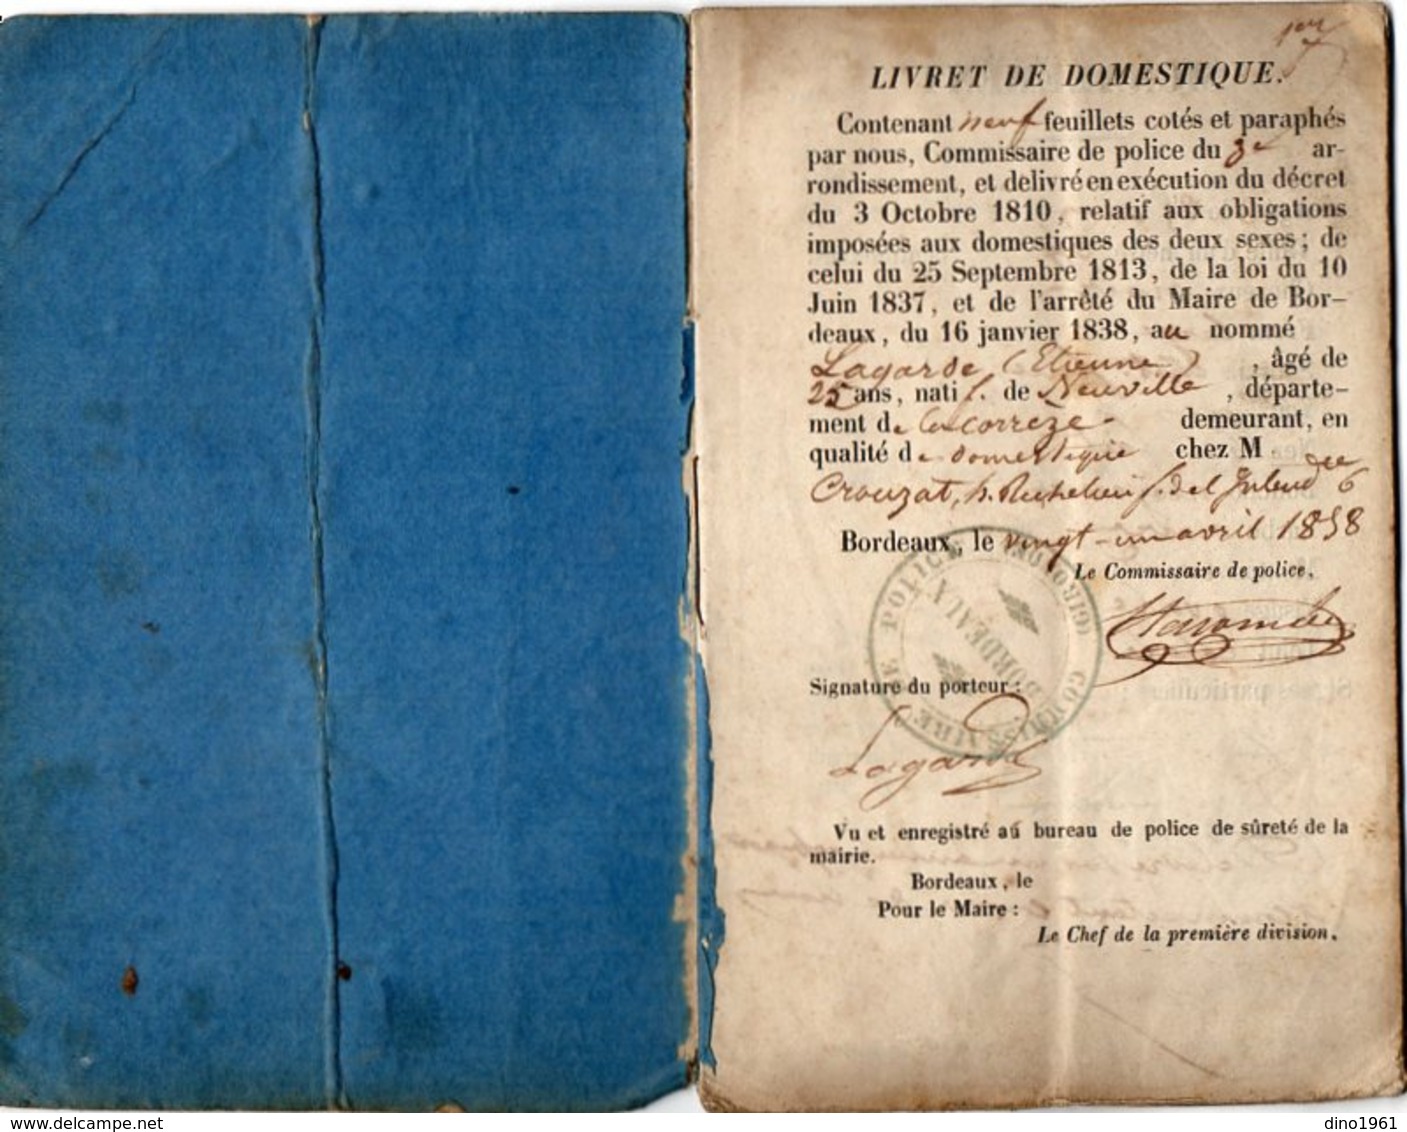 1er
LIVRET DE DOMESTIQUE.
Contenant neuf feuillets cotés et paraphés
par nous, Commissaire de police du 3e ar-
rondissement, et delivré en exécution du décret
du 3 Octobre 1810, relatif aux obligations
imposées aux domestiques des deux sexes; de
celui du 25 Septembre 1813, de la loi du 10
Juin 1837, et de l'arrêté du Maire de Bor-
deaux, du 16 janvier 1838, au nommé
Lagarde (Etienne), âgé de
25 ans, natif. de Neuville, départe-
ment de la correze demeurant, en
qualité de domestique chez M
Crouzat, h. Richelieu
Bordeaux, le vingt-un avril 1858
Le Commissaire de police,
COMMISSAIRE DE POLICE
BORDEAUX
(GIRONDE)
Signature du porteur:
Lagarde
Vu et enregistré au bureau de police de sûreté de la
mairie.
Bordeaux, le
Pour le Maire:
Le Chef de la première division,
www.delcampe.net
dino1961